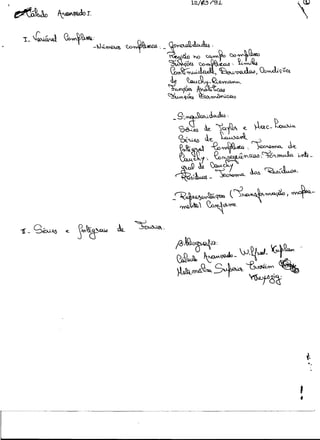 12/03/92
Cálculo Avançado I.
I. Variável Complexa
- Números Complexos. - Generalidades.
Função no campo complexo
Funções complexas. Limite
Continuidade, Derivadas, Condições
de Cauchy-Riemann.
Funções Analíticas
Funções Harmônicas
- Singularidades.
Séries de Taylor e Mac-Laurin
Séries de Laurent
Integral Complexa. Teorema de
Cauchy. Consequências. Fórmula inte-
gral de Cauchy
Resíduos - Teorema dos Resíduos.
- Representações (Transformação, mapea-
mento) Conforme
II - Séries e Integrais de Fourier.
Bibliografia:
Cálculo Avançado - Wilfred Kaplan
Matemática Superior
Kreyszig